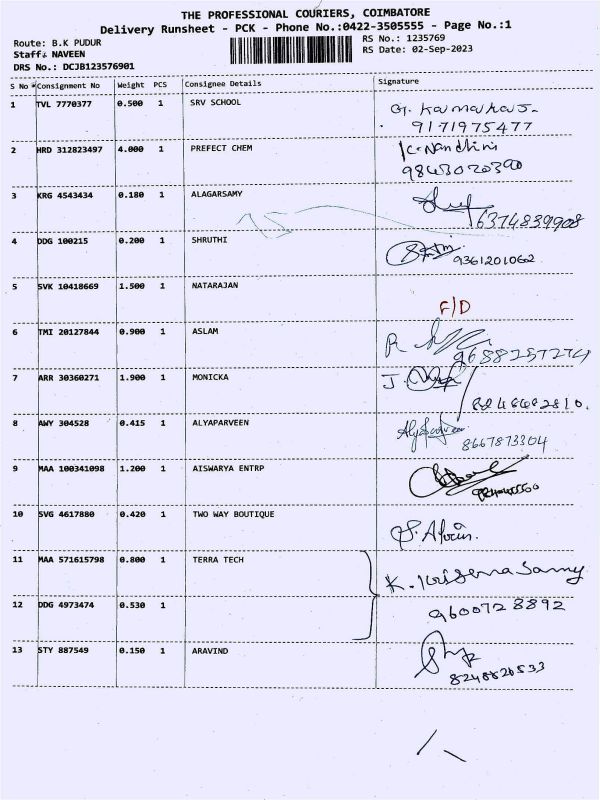 THE PROFESSIONAL COURIERS, COIMBATORE
Delivery Runsheet - PCK - Phone No.:0422-3505555 - Page No.:1
Route: B.K PUDUR
RS No.: 1235769
Staff: NAVEEN
RS Date: 02-Sep-2023
DRS No.: DCJB123576901
S No *Consignment No Weight PCS Consignee Details Signature
1 TVL 7770377 0.500 1 SRV SCHOOL
9171975477
2 HRD 312823497 4.000 1 PREFECT CHEM K. Nandhini
9843020390
3 KRG 4543434 0.180 1 ALAGARSAMY
6374839908
4 DDG 100215 0.200 1 SHRUTHI 9361201062
5 SVK 10418669 1.500 1 NATARAJAN
F/D
6 TMI 20127844 0.900 1 ASLAM R
9688257274
7 ARR 30360271 1.900 1 MONICKA J.
8 AWY 304528 0.415 1 ALYAPARVEEN
8667873304
9 MAA 100341098 1.200 1 AISWARYA ENTRP
10 SVG 4617880 0.420 1 TWO WAY BOUTIQUE
11 MAA 571615798 0.800 1 TERRA TECH
K. Krishna Samy
12 DDG 4973474 0.530 1 9600728892
13 STY 887549 0.150 1 ARAVIND
8248820533